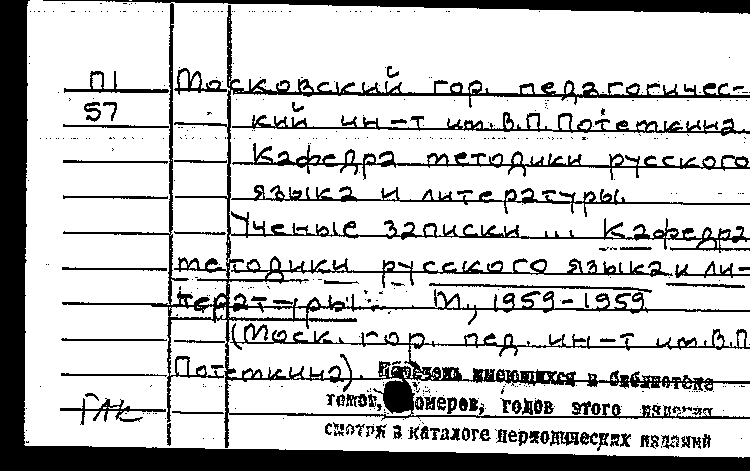 П1 Московский гор. педагогичес-
57 кий ин-т им.В.П.Потемкина.
Кафедра методики русского
языка и литературы.
Ученые записки ... Кафедра
методики русского языка и ли-
тературы. М., 1959-1959
(Моск. гор. пед. ин-т им.В.П.
Потемкина). Перечень имеющихся в библиотеке
томов, номеров, годов этого издания
смотри в каталоге периодических изданий